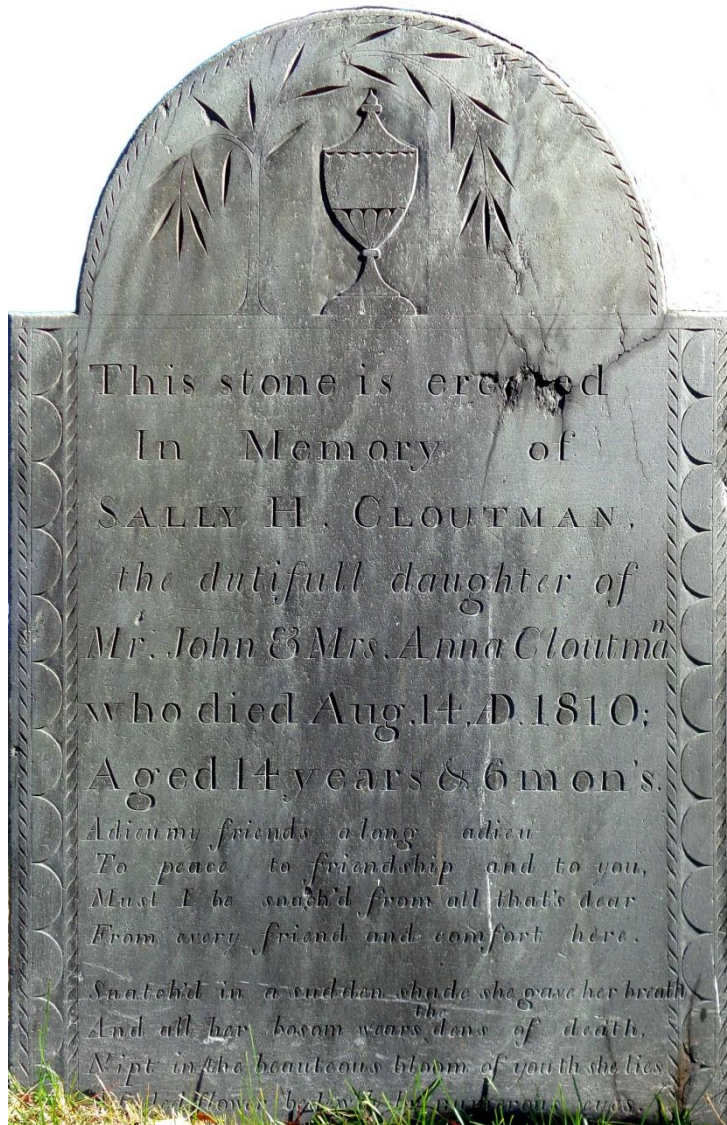 This stone is erected
In Memory of
SALLY H. CLOUTMAN,
the dutifull daughter of
Mr. John & Mrs. Anna Cloutman
who died Aug. 14, AD. 1810;
Aged 14 years & 6 mon's.
Adieu my friends a long adieu
To peace to friendship and to you,
Must I be snach'd from all that's dear
From every friend and comfort here.
Snatch'd in a sudden shade she gave her breath
And all her bosom wears the dens of death,
Nipt in the beauteous bloom of youth she lies
flower numerous eyes.